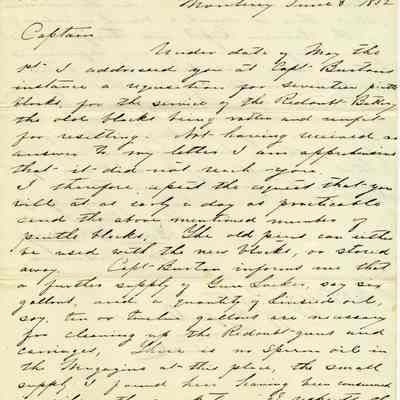 Monterey June 8 1852
Captain
Under date of May the
1st I addressed you at Capt Burtons
instance a requisition for seventeen pintle
blocks, for the service of the Redoubt Battery
the old blocks being rotten and unfit
for resetting. Not having received an
answer to my letter I am apprehensive
that it did not reach you.
I therefore repeat the request that you
will at as early a day as practicable
send the above mentioned number of
pintle blocks, The old pins can either
be used with the new blocks, or stored
away. Capt Burton informs me that
a further supply of Gun Lacker, say six
gallons, and a quantity of Linseed oil,
say, ten or twelve gallons are necessary
for cleaning up the Redoubt guns and
carriages, There is no Sperm oil in
the Magazine at this place, the small
supply I found here having been consumed